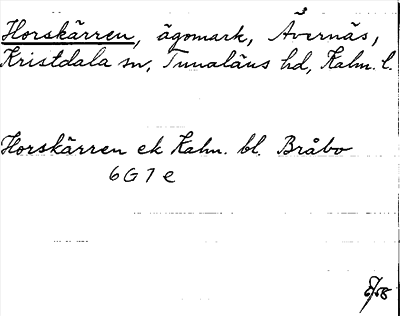 Horskärren, ägomark, Åvernäs,
Kristdala sn, Tunaläns hd, Kalm. l.
Horskärren ek Kalm. bl. Bråbo
6 G 7 e